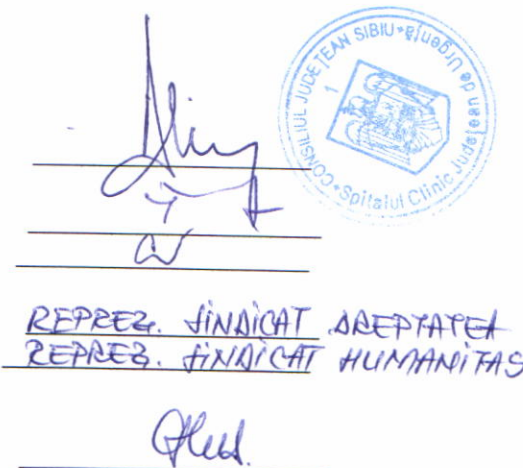 CONSILIUL JUDEȚEAN SIBIU * Spitalul Clinic Județean de Urgență
1
REPREZ. SINDICAT DREPTATEA
REPREZ. SINDICAT HUMANITAS